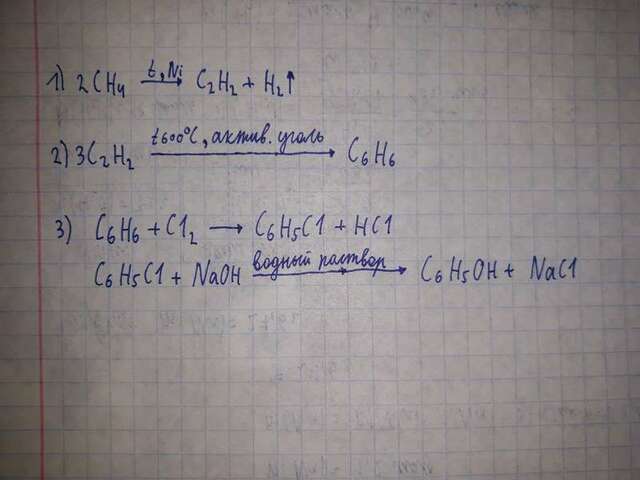 1) 2CH4 t,Ni → C2H2 + H2↑
2) 3C2H2 t600°C, актив. уголь → C6H6
3) C6H6 + Cl2 → C6H5Cl + HCl
C6H5Cl + NaOH водный раствор → C6H5OH + NaCl